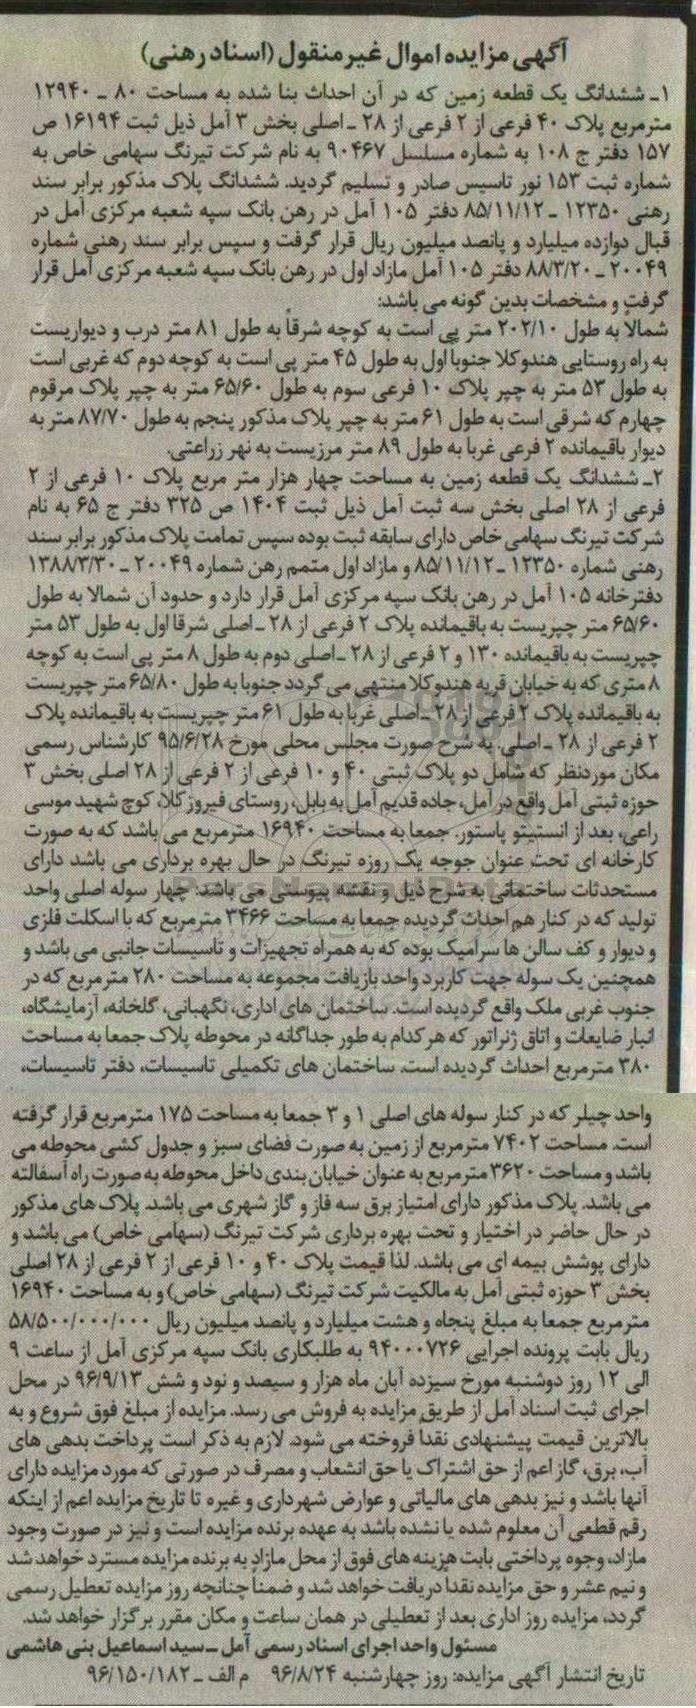 آگهی مزایده اموال غیرمنقول (اسناد رهنی)
۱ـ ششدانگ یک قطعه زمین که در آن احداث بنا شده به مساحت ۸۰ ـ ۱۲۹۴۰
مترمربع پلاک ۴۰ فرعی از ۲ فرعی از ۲۸ ـ اصلی بخش ۳ آمل ذیل ثبت ۱۶۱۹۴ ص
۱۵۷ دفتر ج ۱۰۸ به شماره مسلسل ۹۰۴۶۷ به نام شرکت تیرنگ سهامی خاص به
شماره ثبت ۱۵۳ نور تاسیس صادر و تسلیم گردید. ششدانگ پلاک مذکور برابر سند
رهنی ۱۲۳۵۰ ـ ۸۵/۱۱/۱۲ دفتر ۱۰۵ آمل در رهن بانک سپه شعبه مرکزی آمل در
قبال دوازده میلیارد و پانصد میلیون ریال قرار گرفت و سپس برابر سند رهنی شماره
۲۰۰۴۹ ـ ۸۸/۳/۲۰ دفتر ۱۰۵ آمل مازاد اول در رهن بانک سپه شعبه مرکزی آمل قرار
گرفت و مشخصات بدین گونه می باشد:
شمالا به طول ۲۰۲/۱۰ متر پی است به کوچه شرقاً به طول ۸۱ متر درب و دیواریست
به راه روستایی هندوکلا جنوبا اول به طول ۴۵ متر پی است به کوچه دوم که غربی است
به طول ۵۳ متر به چپر پلاک ۱۰ فرعی سوم به طول ۶۵/۶۰ متر به چپر پلاک مرقوم
چهارم که شرقی است به طول ۶۱ متر به چپر پلاک مذکور پنجم به طول ۸۷/۷۰ متر به
دیوار باقیمانده ۲ فرعی غربا به طول ۸۹ متر مرزیست به نهر زراعتی.
۲ـ ششدانگ یک قطعه زمین به مساحت چهار هزار متر مربع پلاک ۱۰ فرعی از ۲
فرعی از ۲۸ اصلی بخش سه ثبت آمل ذیل ثبت ۱۴۰۴ ص ۳۲۵ دفتر ج ۶۵ به نام
شرکت تیرنگ سهامی خاص دارای سابقه ثبت بوده سپس تمامت پلاک مذکور برابر سند
رهنی شماره ۱۲۳۵۰ ـ ۸۵/۱۱/۱۲ و مازاد اول متمم رهن شماره ۲۰۰۴۹ ـ ۱۳۸۸/۳/۳۰
دفترخانه ۱۰۵ آمل در رهن بانک سپه مرکزی آمل قرار دارد و حدود آن شمالا به طول
۶۵/۶۰ متر چپریست به باقیمانده پلاک ۲ فرعی از ۲۸ ـ اصلی شرقا اول به طول ۵۳ متر
چپریست به باقیمانده ۱۳۰ و ۲ فرعی از ۲۸ ـ اصلی دوم به طول ۸ متر پی است به کوچه
۸ متری که به خیابان قریه هندوکلا منتهی می گردد جنوبا به طول ۶۵/۸۰ متر چپریست
به باقیمانده پلاک ۲ فرعی از ۲۸ ـ اصلی غربا به طول ۶۱ متر چپریست به باقیمانده پلاک
۲ فرعی از ۲۸ ـ اصلی. به شرح صورت مجلس محلی مورخ ۹۵/۶/۲۸ کارشناس رسمی
مکان موردنظر که شامل دو پلاک ثبتی ۴۰ و ۱۰ فرعی از ۲ فرعی از ۲۸ اصلی بخش ۳
حوزه ثبتی آمل واقع در آمل، جاده قدیم آمل به بابل، روستای فیروزکلا، کوچ شهید موسی
راعی، بعد از انستیتو پاستور. جمعا به مساحت ۱۶۹۴۰ مترمربع می باشد که به صورت
کارخانه ای تحت عنوان جوجه یک روزه تیرنگ در حال بهره برداری می باشد دارای
مستحدثات ساختمانی به شرح ذیل و نقشه پیوستی می باشد: چهار سوله اصلی واحد
تولید که در کنار هم احداث گردیده جمعا به مساحت ۳۴۶۶ مترمربع که با اسکلت فلزی
و دیوار و کف سالن ها سرامیک بوده که به همراه تجهیزات و تاسیسات جانبی می باشد و
همچنین یک سوله جهت کاربرد واحد بازیافت مجموعه به مساحت ۲۸۰ مترمربع که در
جنوب غربی ملک واقع گردیده است. ساختمان های اداری، نگهبانی، گلخانه، آزمایشگاه،
انبار ضایعات و اتاق ژنراتور که هر کدام به طور جداگانه در محوطه پلاک جمعا به مساحت
۳۸۰ مترمربع احداث گردیده است. ساختمان های تکمیلی تاسیسات، دفتر تاسیسات،
واحد چیلر که در کنار سوله های اصلی ۱ و ۳ جمعا به مساحت ۱۷۵ مترمربع قرار گرفته
است. مساحت ۷۴۰۲ مترمربع از زمین به صورت فضای سبز و جدول کشی محوطه می
باشد و مساحت ۳۶۲۰ مترمربع به عنوان خیابان بندی داخل محوطه به صورت راه آسفالته
می باشد. پلاک مذکور دارای امتیاز برق سه فاز و گاز شهری می باشد. پلاک های مذکور
در حال حاضر در اختیار و تحت بهره برداری شرکت تیرنگ (سهامی خاص) می باشد و
دارای پوشش بیمه ای می باشد. لذا قیمت پلاک ۴۰ و ۱۰ فرعی از ۲ فرعی از ۲۸ اصلی
بخش ۳ حوزه ثبتی آمل به مالکیت شرکت تیرنگ (سهامی خاص) و به مساحت ۱۶۹۴۰
مترمربع جمعا به مبلغ پنجاه و هشت میلیارد و پانصد میلیون ریال ۵۸/۵۰۰/۰۰۰/۰۰۰
ریال بابت پرونده اجرایی ۹۴۰۰۰۷۲۶ به طلبکاری بانک سپه مرکزی آمل از ساعت ۹
الی ۱۲ روز دوشنبه مورخ سیزده آبان ماه هزار و سیصد و نود و شش ۹۶/۹/۱۳ در محل
اجرای ثبت اسناد آمل از طریق مزایده به فروش می رسد. مزایده از مبلغ فوق شروع و به
بالاترین قیمت پیشنهادی نقدا فروخته می شود. لازم به ذکر است پرداخت بدهی های
آب، برق، گاز اعم از حق اشتراک یا حق انشعاب و مصرف در صورتی که مورد مزایده دارای
آنها باشد و نیز بدهی های مالیاتی و عوارض شهرداری و غیره تا تاریخ مزایده اعم از اینکه
رقم قطعی آن معلوم شده یا نشده باشد به عهده برنده مزایده است و نیز در صورت وجود
مازاد، وجوه پرداختی بابت هزینه های فوق از محل مازاد به برنده مزایده مسترد خواهد شد
و نیم عشر و حق مزایده نقدا دریافت خواهد شد و ضمناً چنانچه روز مزایده تعطیل رسمی
گردد، مزایده روز اداری بعد از تعطیلی در همان ساعت و مکان مقرر برگزار خواهد شد.
مسئول واحد اجرای اسناد رسمی آمل ـ سید اسماعیل بنی هاشمی
تاریخ انتشار آگهی مزایده: روز چهارشنبه ۹۶/۸/۲۴ م الف ـ ۹۶/۱۵۰/۱۸۲